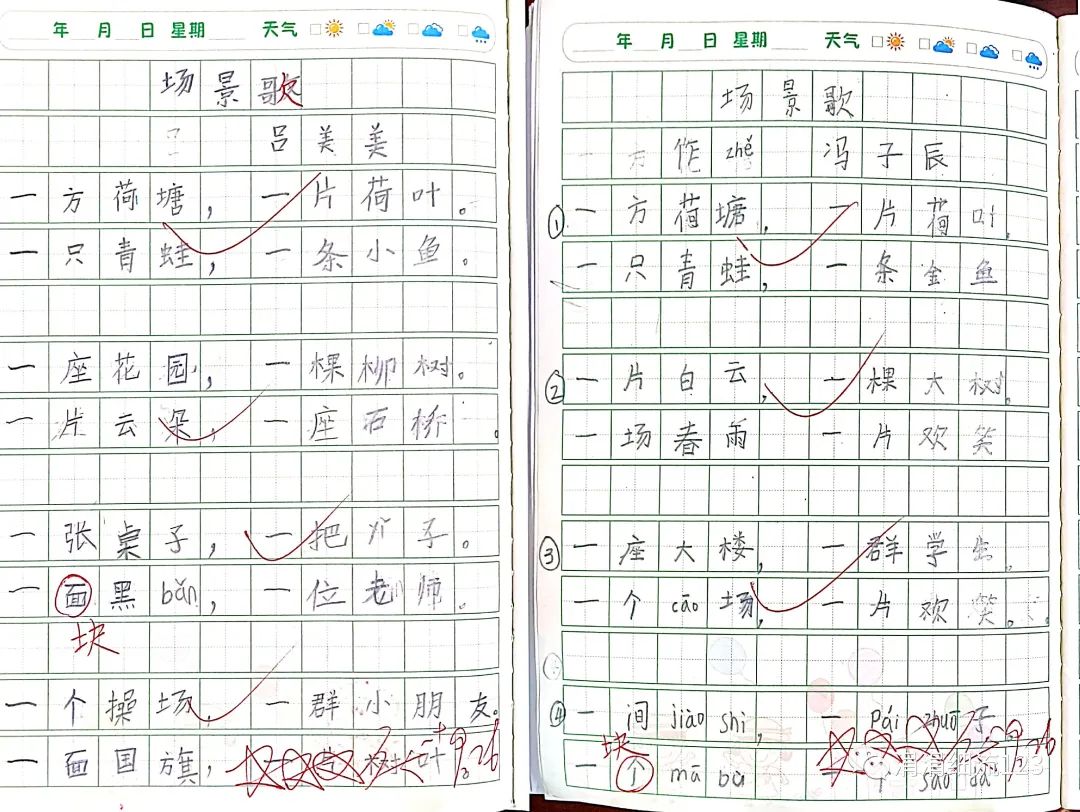 年 月 日 星期 天气
场景歌
吕美美
一方荷塘，一片荷叶。
一只青蛙，一条小鱼。
一座花园，一棵柳树。
一片云朵，一座石桥。
一张桌子，一把 子。
一面黑bǎn，一位老师。
块
一个操场，一群小朋友。
一面国旗，一 树叶
9.26
年 月 日 星期 天气
场景歌
作zhě 冯子辰
①一方荷塘，一片荷叶。
一只青蛙，一条金鱼
②一片白云，一棵大树。
一场春雨 一片欢笑
③一座大楼，一群学生。
一个cāo场，一片欢笑。
④一间jiào shì，一pái zhuō子
块
一个mā bù
9.26